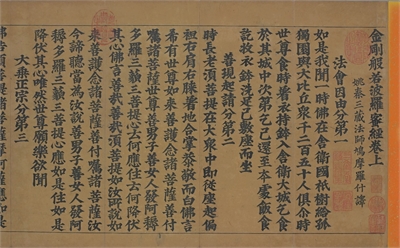 金剛般若波羅蜜經卷上
姚秦三藏法師鳩摩羅什譯
法會因由分第一
如是我聞一時佛在舍衛國祇樹給孤
獨園與大比丘衆千二百五十人俱尒時
世尊食時着衣持鉢入舍衛大城乞食
於其城中次第乞已還至本處飯食
訖收衣鉢洗足已敷座而坐
善現起請分第二
時長老須菩提在大衆中即從座起偏
袒右肩右膝着地合掌恭敬而白佛言
希有世尊如來善護念諸菩薩善付
囑諸菩薩世尊善男子善女人發阿耨
多羅三藐三菩提心云何應住云何降伏
其心佛言善哉善哉須菩提如汝所說如
來善護念諸菩薩善付囑諸菩薩汝
今諦聽當為汝說善男子善女人發阿
耨多羅三藐三菩提心應如是住如是
降伏其心唯然世尊願樂欲聞
大乘正宗分第三
佛告須菩提諸菩薩摩訶薩應如是